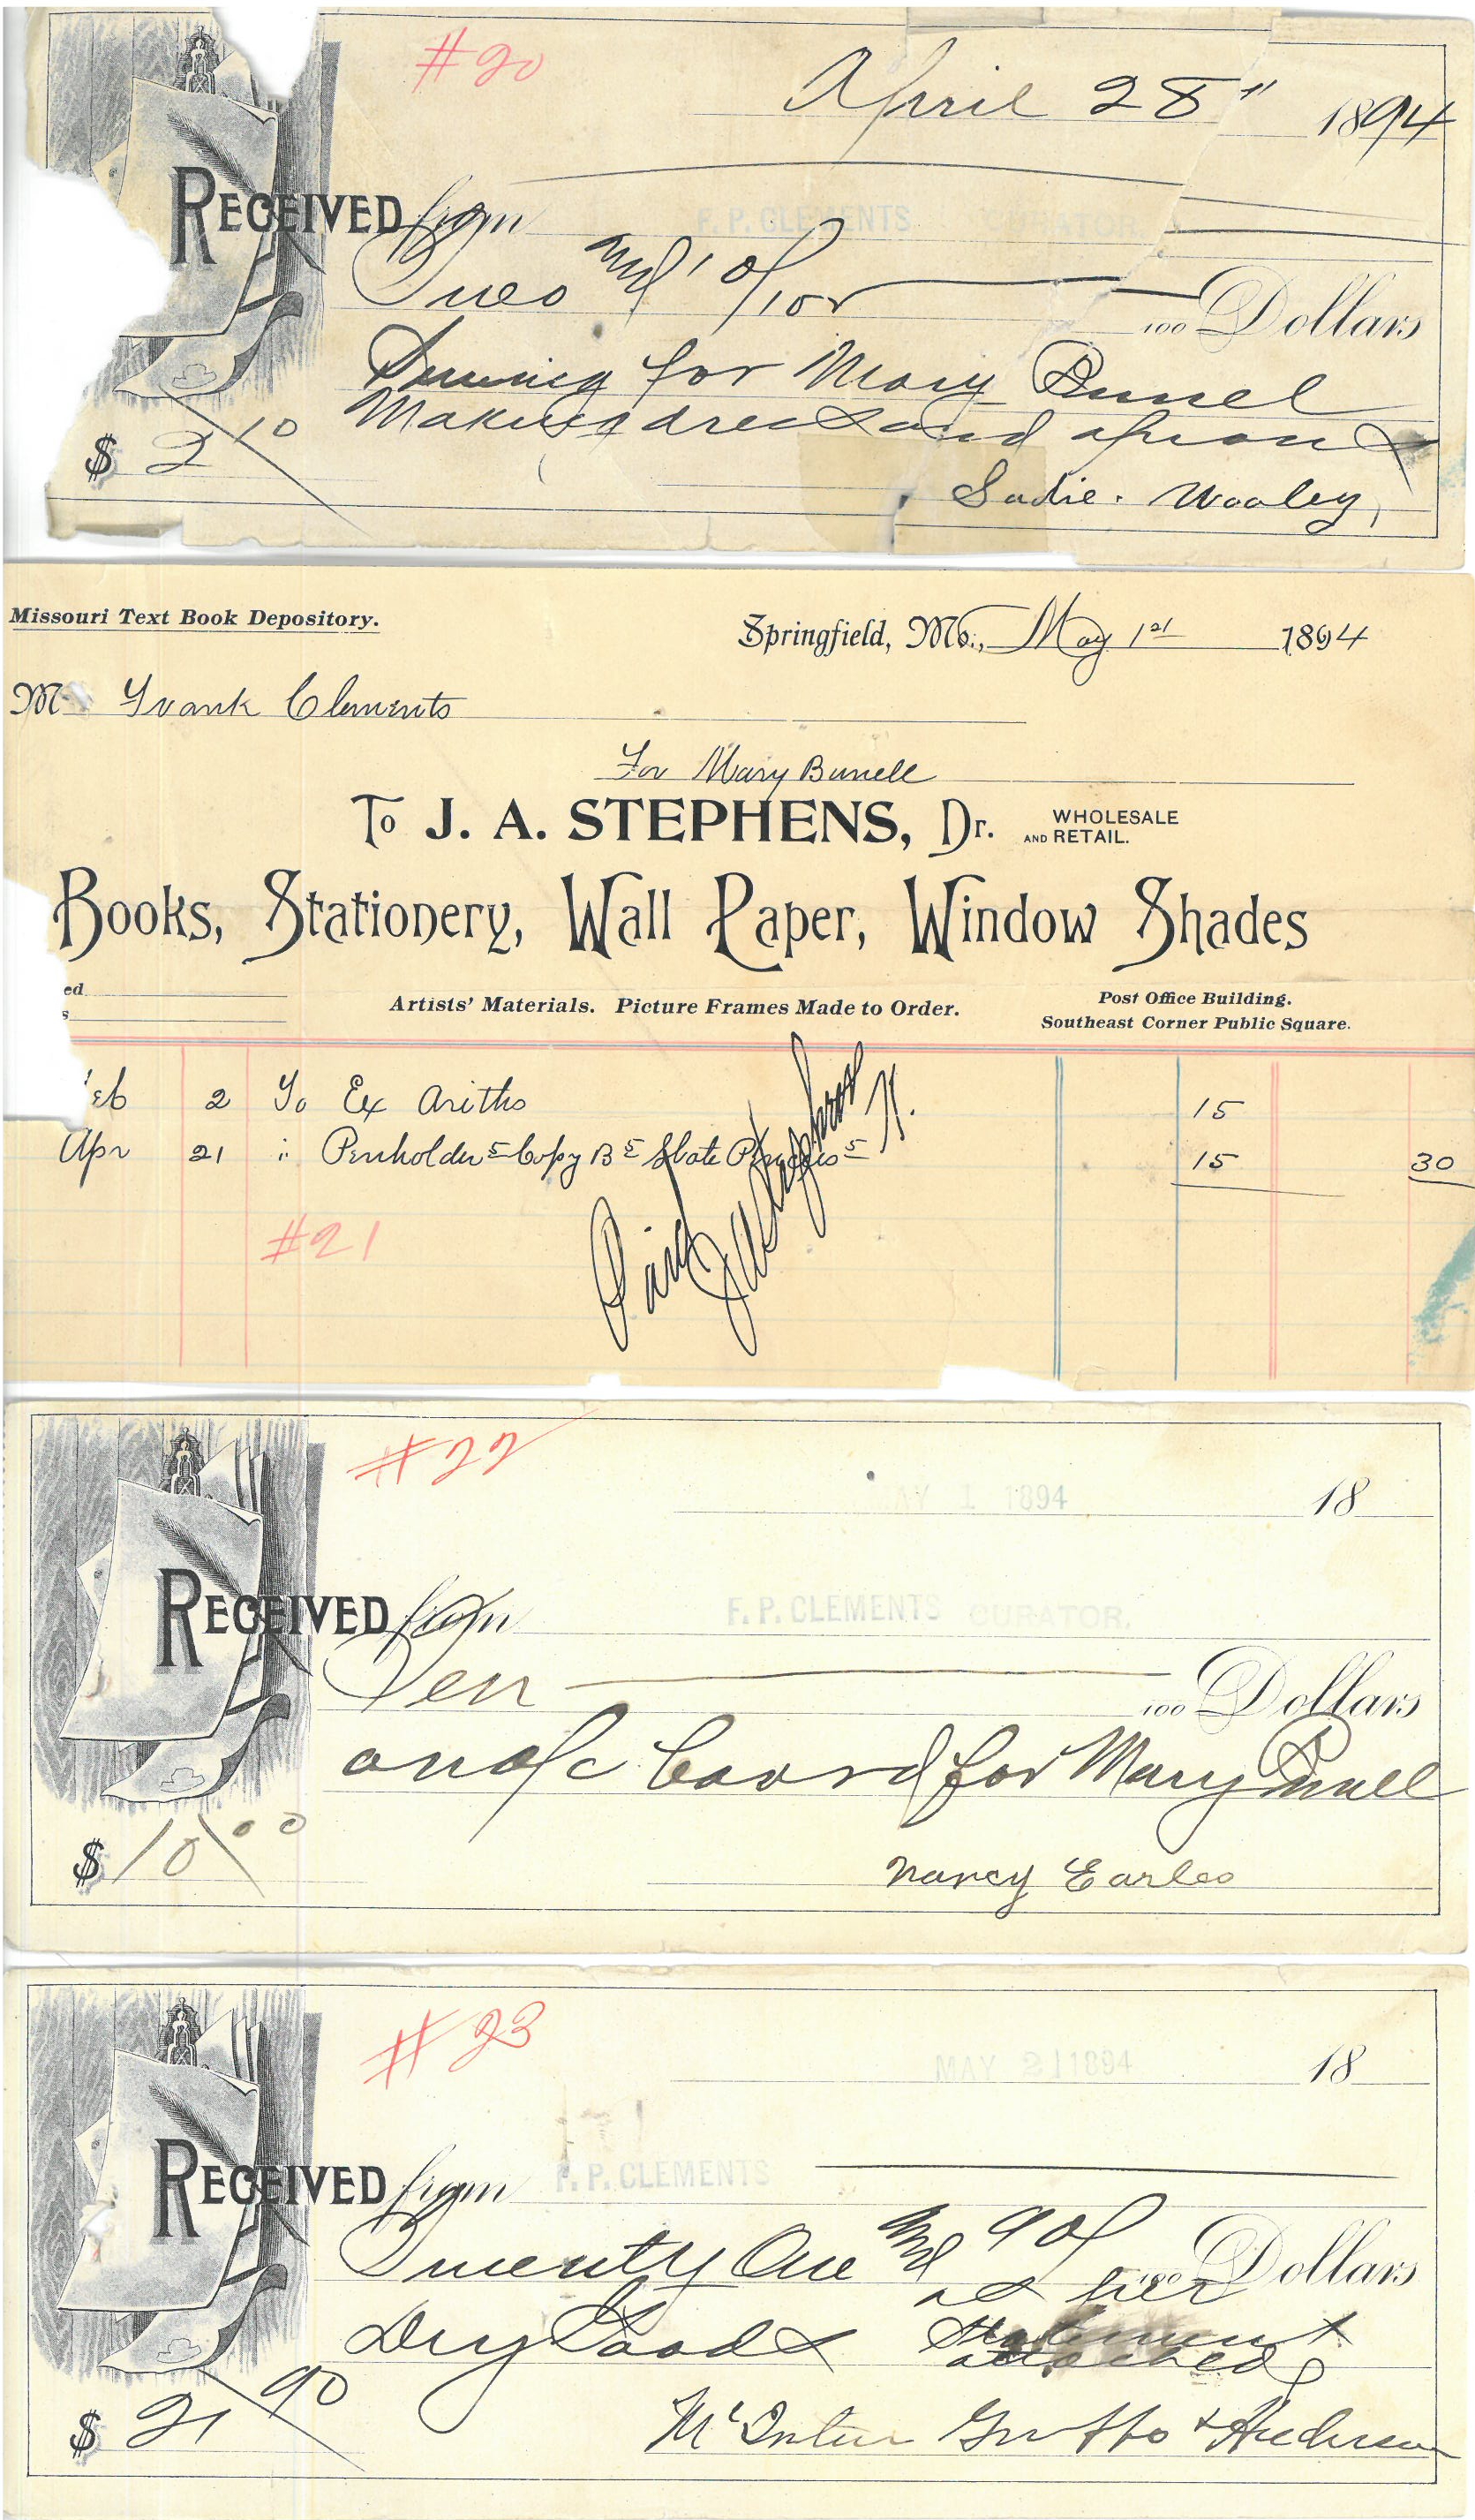 #20
April 28" 1894
RECEIVED from F. P. CLEMENTS CURATOR
Two and 10/100 100 Dollars
Sewing for Mary Bunel
Making dress and aprons
$ 2 10
Sadie. Wooley,
Missouri Text Book Depository.
Springfield, Mo., May 1st 1894
M Frank Clements
For Mary Bunell
To J. A. STEPHENS, Dr. WHOLESALE AND RETAIL.
Books, Stationery, Wall Paper, Window Shades
ed
s
Artists' Materials. Picture Frames Made to Order.
Post Office Building.
Southeast Corner Public Square.
eb 2 To Ex Ariths 15
Apr 21 " Penholder 5 Copy B 5 Slate Pencils 5 15 30
#21
Paid
#22
MAY 1 1894 18
RECEIVED from F. P. CLEMENTS CURATOR.
Ten 100 Dollars
on a/c board for Mary Bunell
$ 10 00
Nancy Earles
#23
MAY 21 1894 18
RECEIVED from F. P. CLEMENTS
Twenty One and 90/ 100 Dollars
Dry Goods as per
statement
attached
$ 21 90